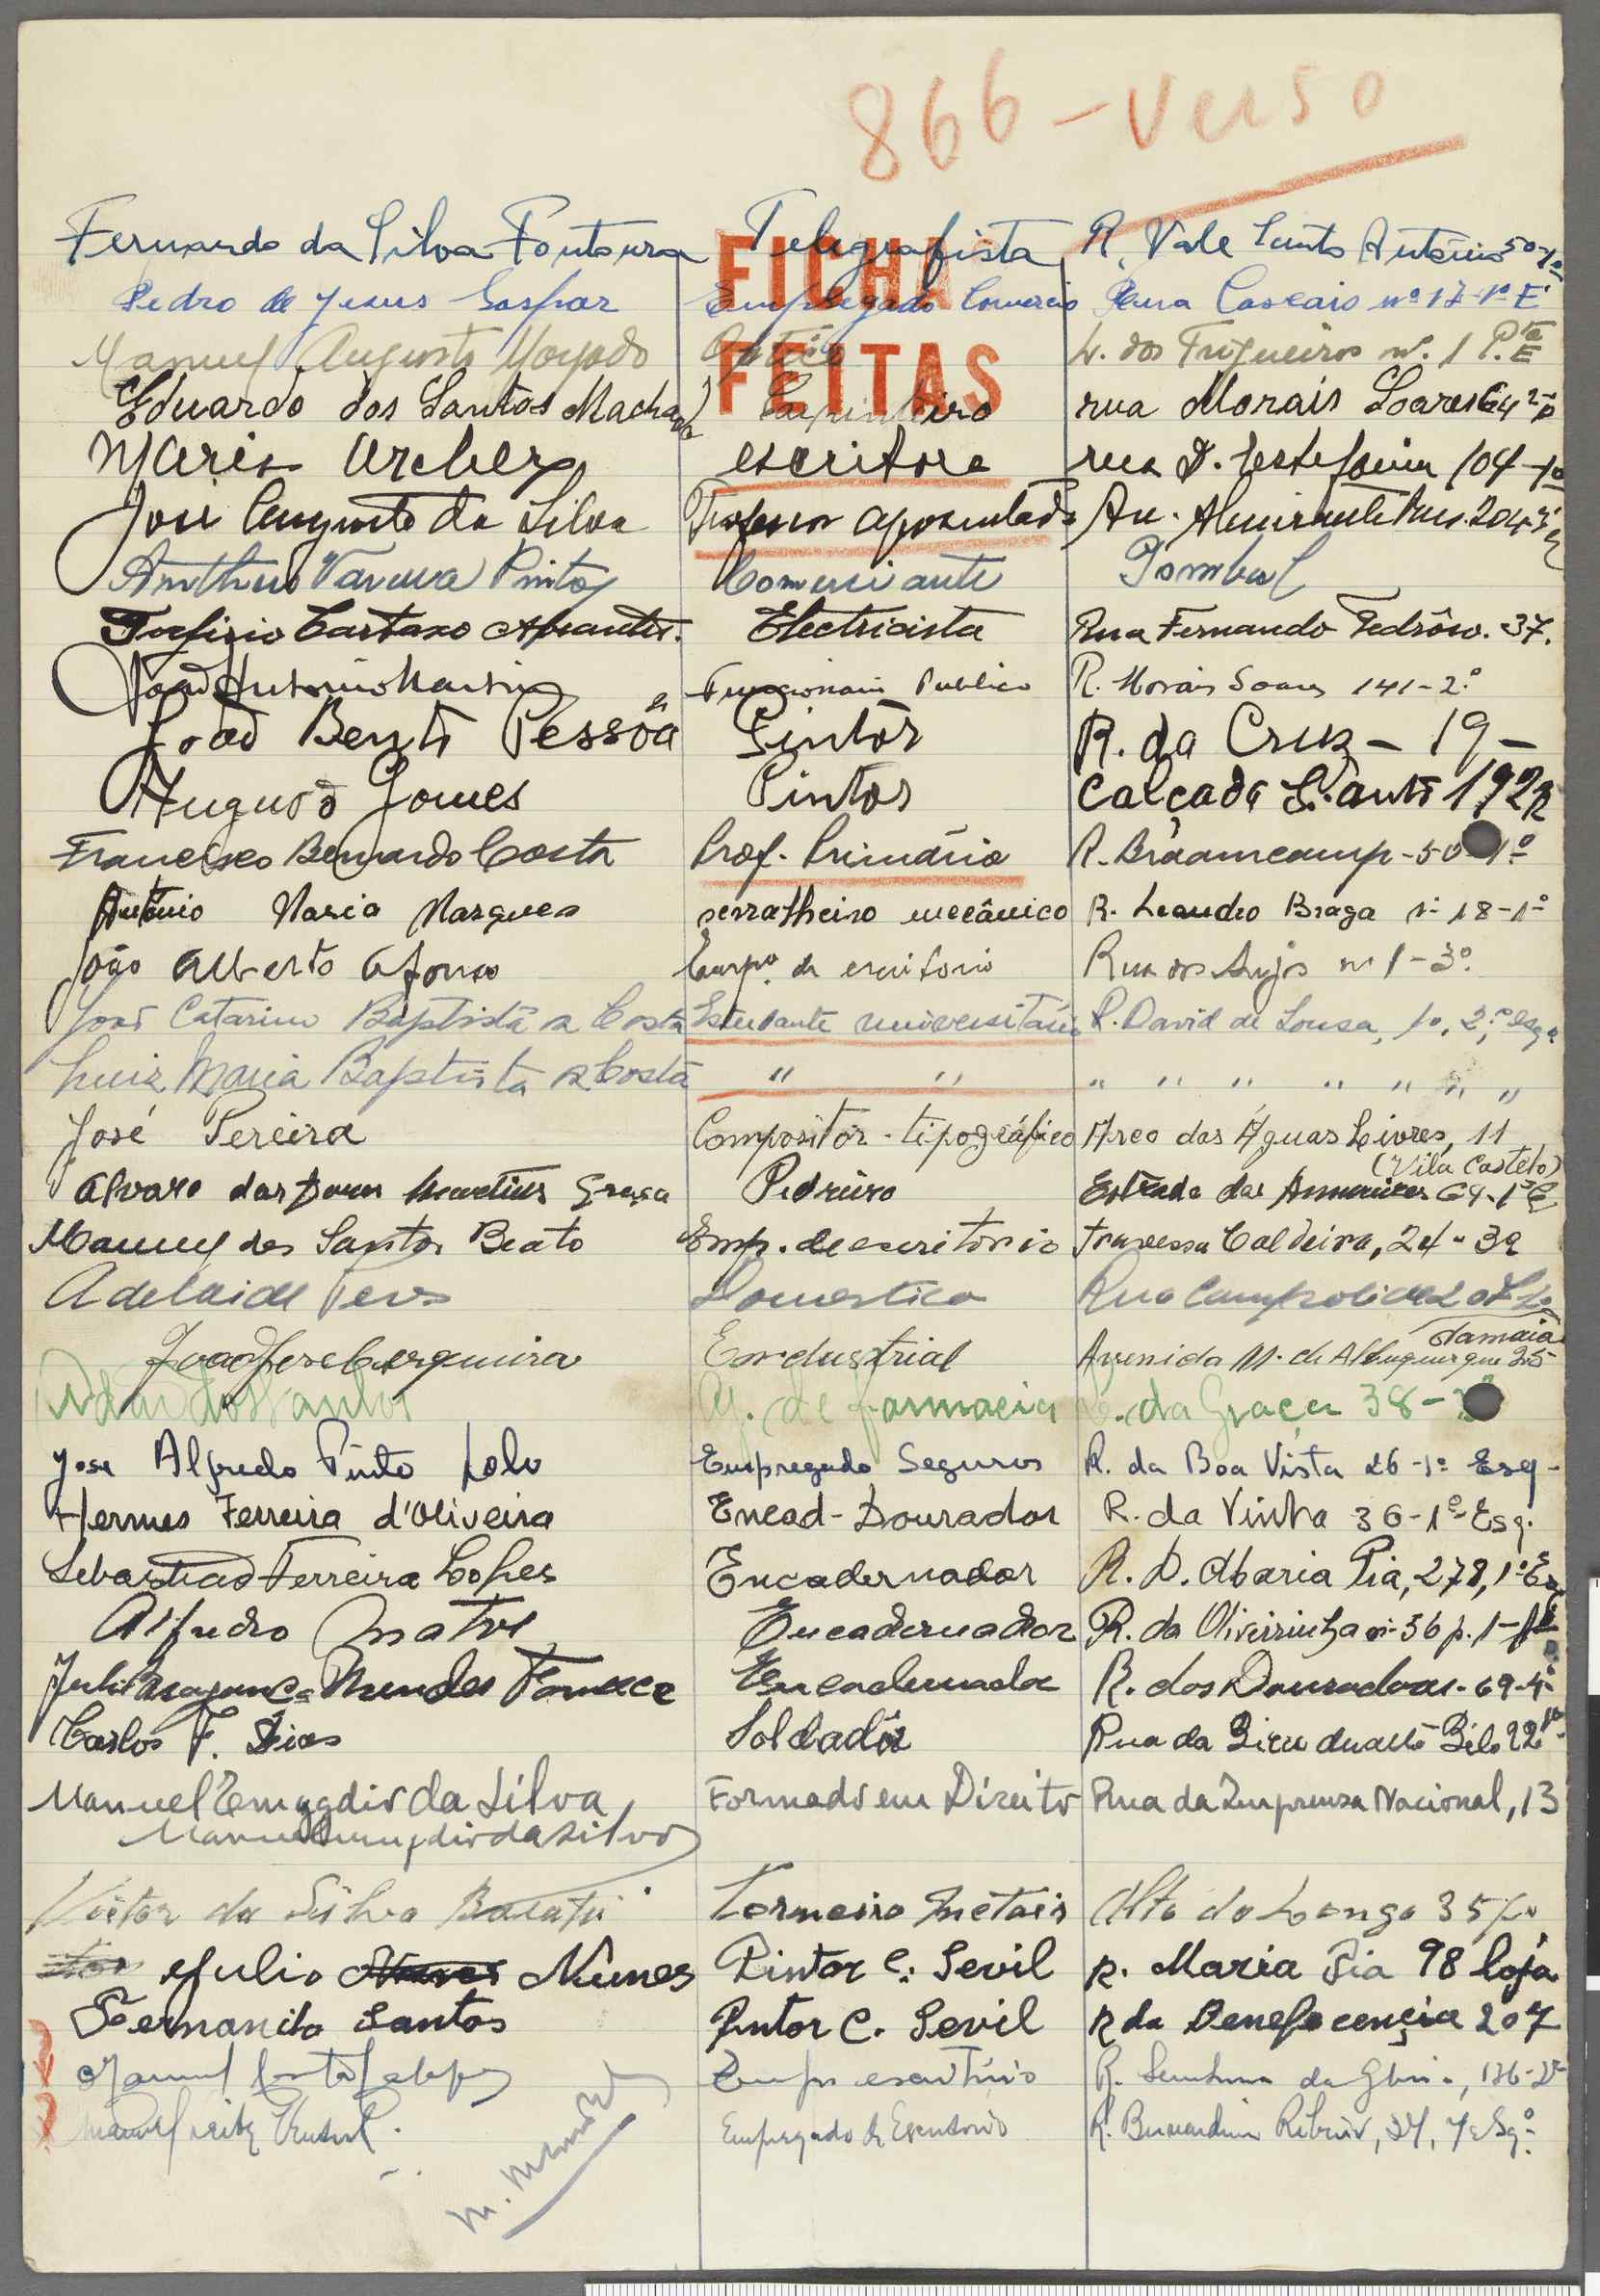 866 - Verso
FICHAS
FEITAS
Fernando da Silva Fontoura Telegrafista R. Vale Santo António 50-1º
Pedro de Jesus Gaspar Empregado Comercio Rua Cascais nº 17-1º E
Manuel Augusto L. dos Trigueiros nº. 1
Eduardo dos Santos Machado Carpinteiro rua Morais Soares 64 2º
Maria Archer escritora rua D. Estefania 104-1º
José Augusto da Silva Professor aposentado Av. Almirante Reis 204
Pinto Comerciante Pombal
Cartaxo Abrantes. Electricista Rua Fernando Pedrôso. 37.
João António Martins Funcionario Publico R. Morais Soares 141-2.º
João Bento Pessôa Pintôr R. da Cruz - 19 -
Augusto Gomes Pintor Calçada S.
Francisco Bernardo Costa Prof. Primário R. Braamcamp - 50 1º
António Maria Marques serralheiro mecânico R. Leandro Braga nº 18-1º
João Alberto Afonso Empº. de escritorio Rua dos Anjos nº 1-3º.
José Catarino Baptista da Costa Estudante universitário R. David de Sousa, 10, 2º esq
Luiz Maria Baptista da Costa " " " " " " " " "
José Pereira Compositor-tipográfico Arco das Águas Livres, 11
(Vila Castelo)
Alvaro das Martins Graça Pedreiro Estrada das 69-1º
Manuel dos Santos Beato Emp. de escritório Travessa Caldeira, 24-3º
Adelaide Domestica Rua Campolide
Damaia
João José Cerqueira Endustrial Avenida M. de Albuquerque 25
dos Santos de farmacia da Graça 38-
José Alfredo Pinto Lobo Empregado Seguros R. da Boa Vista 26-1º Esq-
Hermes Ferreira d'Oliveira Encad-Dourador R. da Vinha 36-1º-Esq.
Sebastião Ferreira Lopes Encadernador R. D. Maria Pia, 278, 1º
Alfredo Matos Encadernador R. da Oliveirinha nº 36 p. 1-
Mendes Fonseca Encadernador R. dos Douradores. 69-4º
Carlos F. Dias Soldador Rua da Bica duarte Belo 22
Manuel Emygdio da Silva Formado em Direito Rua da Imprensa Nacional, 13
Manuel Emygdio da Silva
Victor da Silva Torneiro Metais Alto do Longo 35
Julio Nunes Pintor C. Sevil R. Maria Pia 98 loja
Fernando Santos Pintor C. Sevil R da Benefecencia 207
Manuel Emp. escritório R. Senhora da Glória, 136-2º
Empregado de Escritorio R. Bernardim Ribeiro,